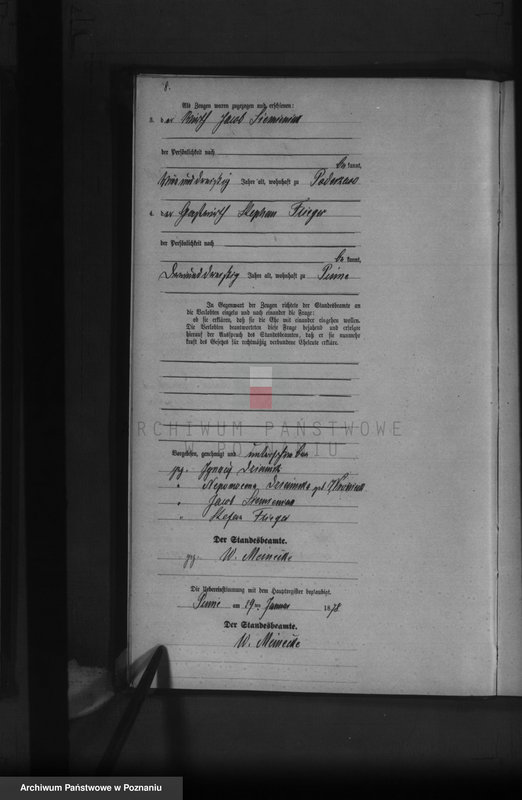 8.
Als Zeugen waren zugezogen und erschienen:
3. der Wirth Jacob
der Persönlichkeit nach
be kannt,
Jahre alt, wohnhaft zu
4. der Gastwirth Stephan Flieger
der Persönlichkeit nach
be kannt,
Dreiunddreißig Jahre alt, wohnhaft zu Pinne
In Gegenwart der Zeugen richtete der Standesbeamte an
die Verlobten einzeln und nach einander die Frage:
ob sie erklären, daß sie die Ehe mit einander eingehen wollen.
Die Verlobten beantworteten diese Frage bejahend und erfolgte
hierauf der Ausspruch des Standesbeamten, daß er sie nunmehr
kraft des Gesetzes für rechtmäßig verbundene Eheleute erkläre.
ARCHIWUM PAŃSTWOWE
W POZNANIU
Vorgelesen, genehmigt und unterschrieben
gez. Ignacy
" Nepomocena geb.
" Jacob
" Stefan Flieger
Der Standesbeamte.
gez. W. Meinicke
Die Uebereinstimmung mit dem Hauptregister beglaubigt.
Pinne am 19ten Januar 1878
Der Standesbeamte.
W. Meinicke
Archiwum Państwowe w Poznaniu